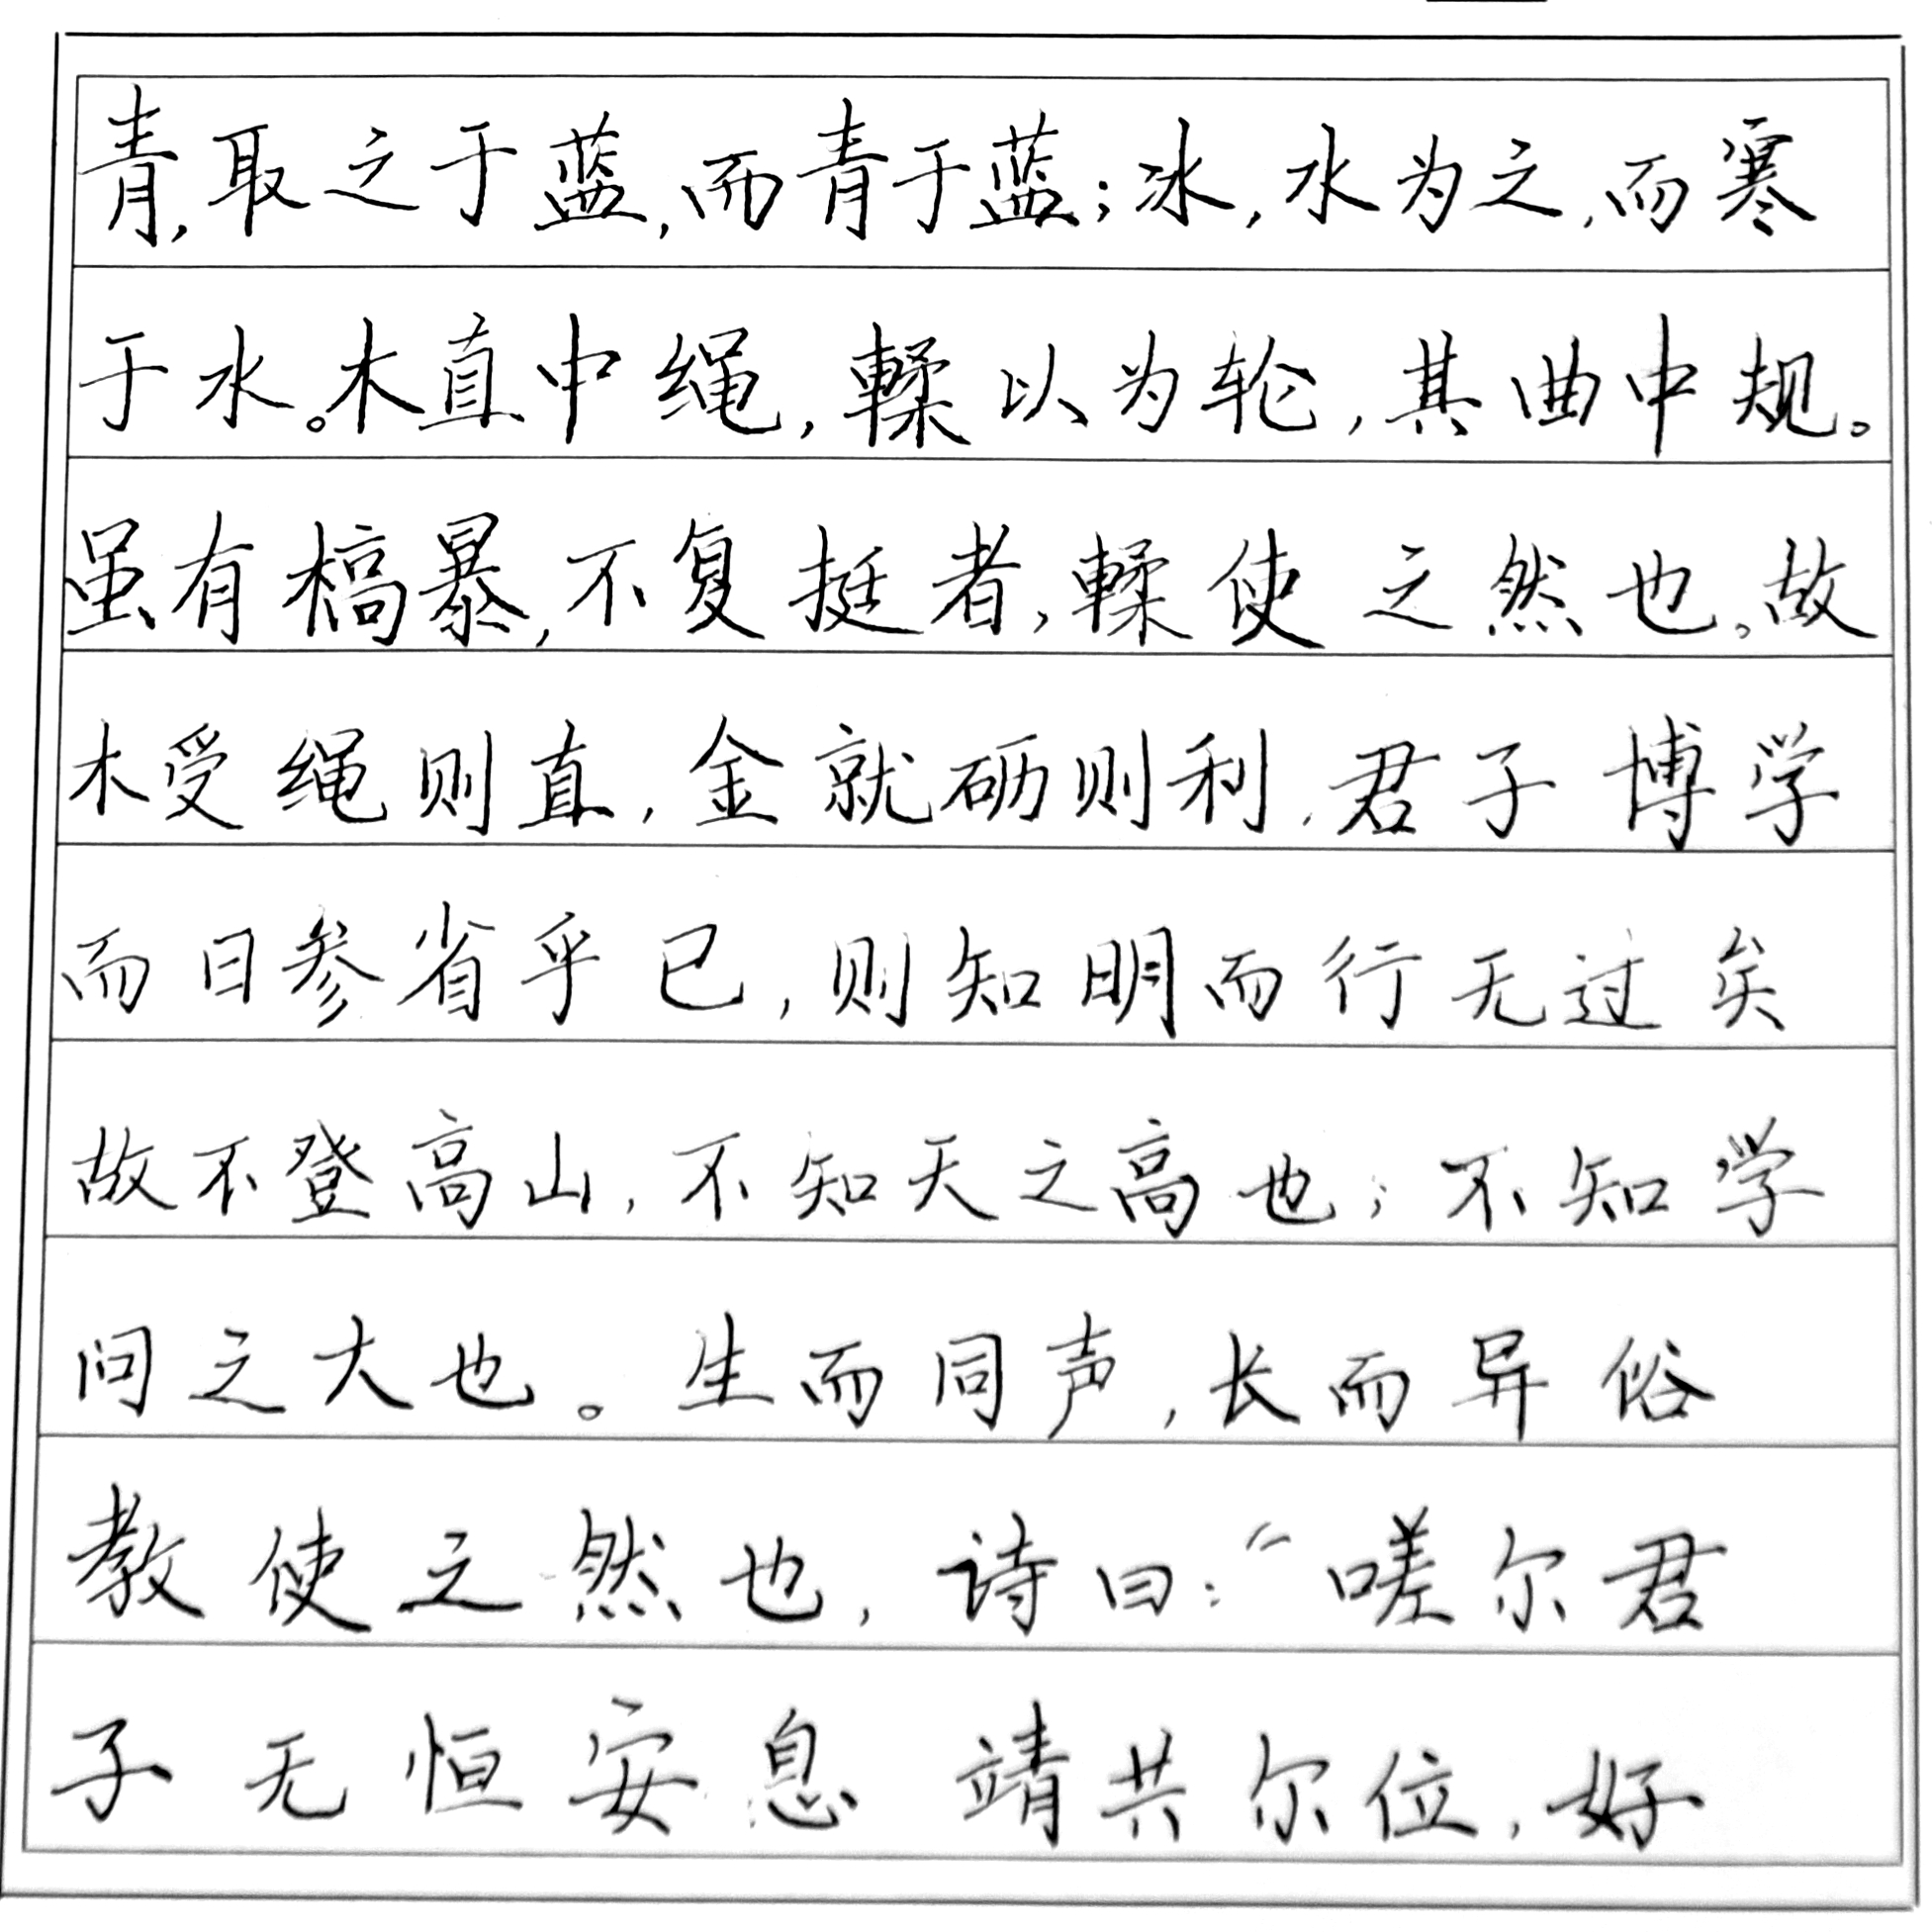 青,取之于蓝,而青于蓝;冰,水为之,而寒
于水。木直中绳,輮以为轮,其曲中规。
虽有槁暴,不复挺者,輮使之然也。故
木受绳则直,金就砺则利,君子博学
而日参省乎已,则知明而行无过矣
故不登高山,不知天之高也;不知学
问之大也。生而同声,长而异俗
教使之然也,诗曰:“嗟尔君
子无恒安息 靖共尔位,好